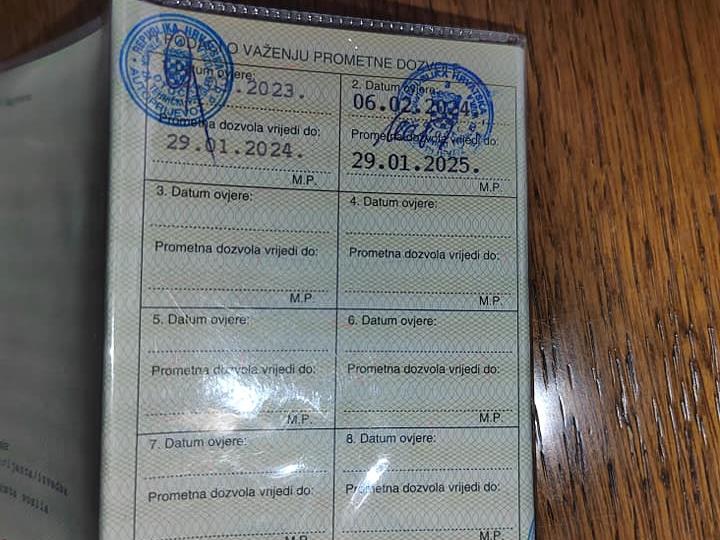 O VAŽENJU PROMETNE DOZVOLE
REPUBLIKA HRVATSKA
Datum ovjere:
.2023.
Prometna dozvola vrijedi do:
29.01.2024.
M.P.
2. Datum ovjere:
06.02.2024.
Prometna dozvola vrijedi do:
29.01.2025.
M.P.
3. Datum ovjere:
Prometna dozvola vrijedi do:
M.P.
4. Datum ovjere:
Prometna dozvola vrijedi do:
M.P.
5. Datum ovjere:
Prometna dozvola vrijedi do:
M.P.
6. Datum ovjere:
Prometna dozvola vrijedi do:
M.P.
7. Datum ovjere:
Prometna dozvola vrijedi do:
M.P.
8. Datum ovjere:
Prometna dozvola vrijedi do:
M.P.